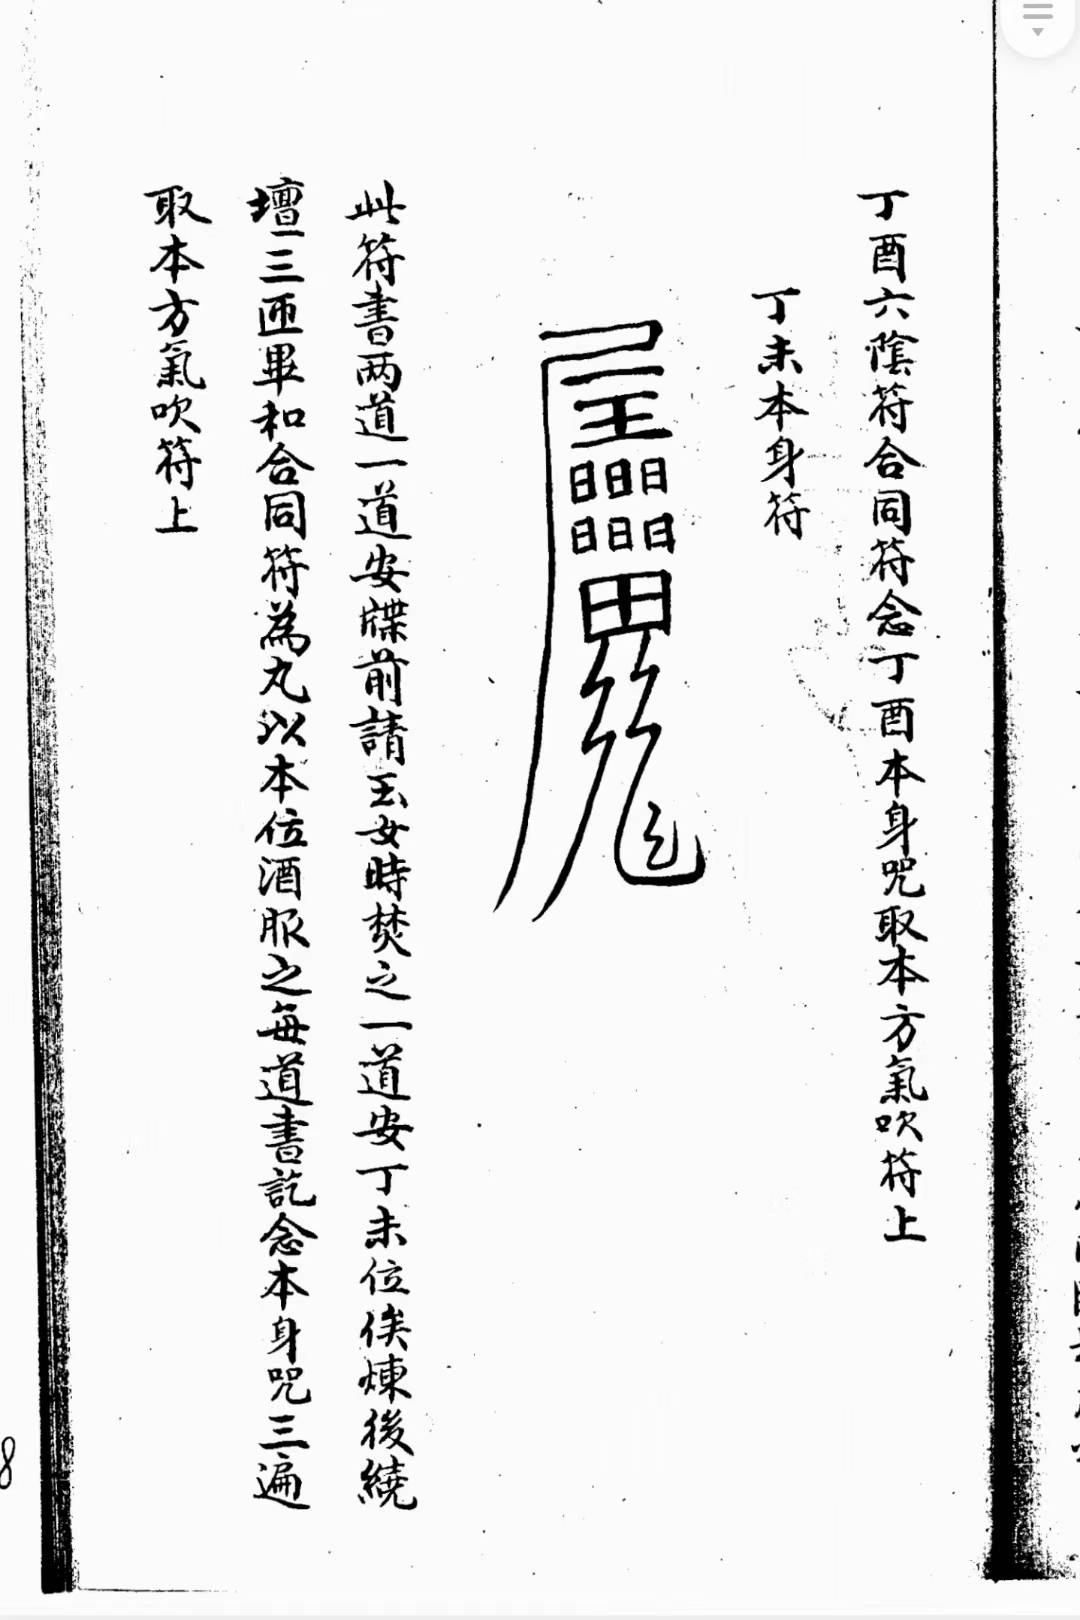 丁酉六陰符合同符念丁酉本身咒取本方氣吹符上
丁未本身符
此符書两道一道安牒前請玉女時焚之一道安丁未位俟煉後繞
壇三匝畢和合同符為丸以本位酒服之每道書訖念本身咒三遍
取本方氣吹符上
8